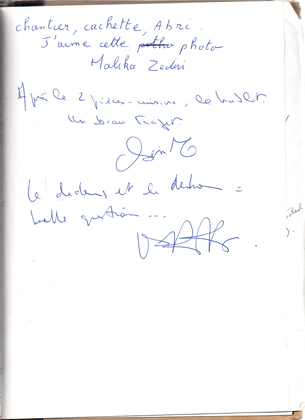 chantier, cachette, Abri.
J'aime cette photo
Malika Zediri
Après le 2 pièces-cuisine, le hublot.
Un beau trajet.
Le dedans et le dehors =
belle question...